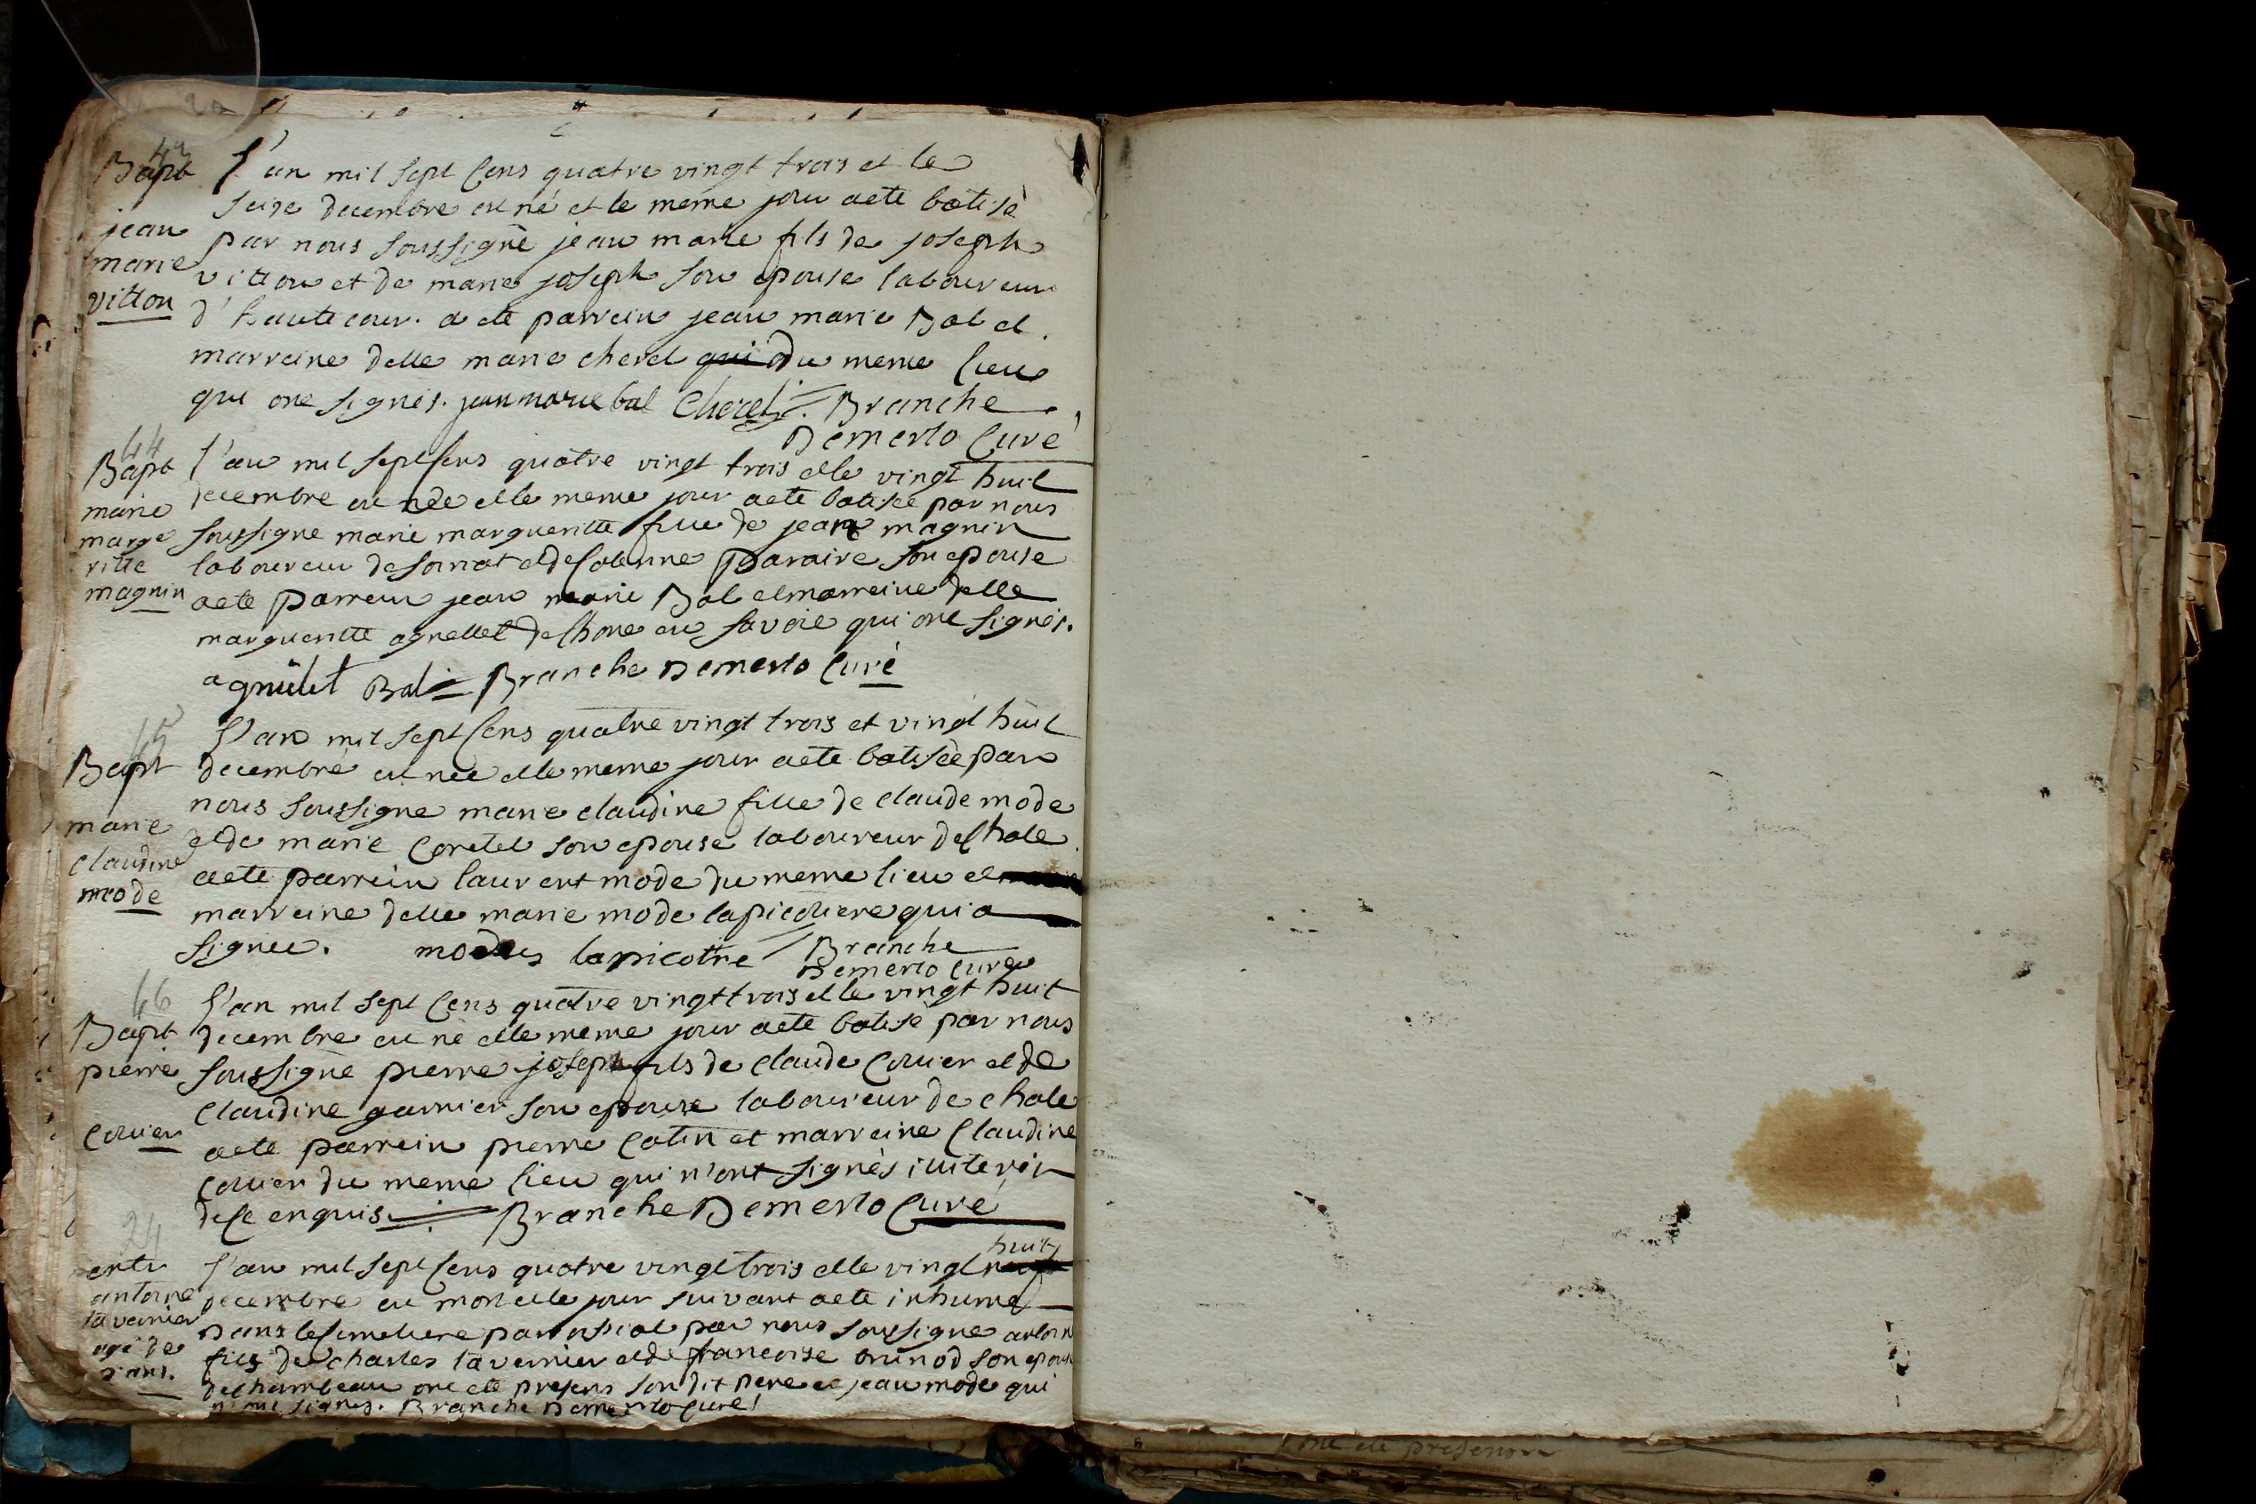 43
Bapt
jean
marie
vitton
l'an mil sept cens quatre vingt trois et le
seize decembre est né et le meme jour a ete batisè
par nous soussigné jean marie fils de joseph
vitton et de marie joseph son epouse laboureur
d'hautecour. a ete parrein jean marie Bal et
marreine delle marie cherel qui du meme lieu
qui ont signés. jean marie bal Cherel Branche
Demerlo Curé
44
Bapt
marie
marge
ritte
magnin
l'an mil sept cens quatre vingt trois et le vingt huit
decembre est née et le meme jour a ete batisée par nous
soussigne marie margueritte fille de jean magnin
laboureur de sornat et de Paravire son epouse
a ete Parrein jean marie Bal et marreine delle
margueritte agnellet de en savoie qui ont signés.
agnielet Bal Branche Demerlo Curé
45
Bapt
marie
claudine
mode
l'an mil sept cens quatre vingt trois et vingt huit
decembre est née et le meme jour a ete batisèe par
nous soussigne marie claudine fille de claude mode
et de marie Coretel son epouse laboureur de chale
a ete parrein laurent mode du meme lieu et
marreine delle marie mode lapicotiere qui a
signee. modes lapicotire Branche
Demerlo Curé
46
Bapt
pierre
Couier
l'an mil sept cens quatre vingt trois et le vingt huit
decembre est né et le meme jour a ete batisé par nous
soussigné pierre joseph fils de claude Couier et de
Claudine garnier son epouse laboureur de chale
a ete parrein pierre Catin et marreine Claudine
Couier du meme lieu qui n'ont signès
de ce enquis. Branche Demerlo Curé
24
ente
antoine
tavernier
agé de
ans.
l'an mil sept cens quatre vingt trois et le vingt huit
decembre est mort et le jour suivant a ete inhumé
Dans le cimetiere paroissial par nous soussigne antoin
fils de charles tavernier et de francoise brunod son epouse
de chambeau ont ete presens son dit pere et jean mode qui
n'ont signes. Branche Demerlo curé
ont ete presens